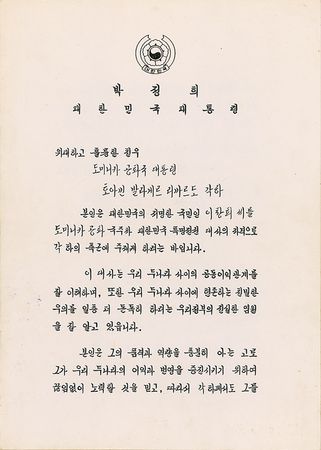 박 정 희
대 한 민 국 대 통 령
위대하고 훌륭한 친우
도미니카 공화국 대통령
호아낀 발라게르 리까르도 각하
본인은 대한민국의 저명한 국민인 이창희 씨를
도미니카 공화국주차 대한민국 특명전권 대사의 자격으로
각하의 곁에 주재케 하려는 바입니다.
이 대사는 우리 두나라 사이의 공동이익관계를
잘 이해하며, 또한 우리 두나라 사이에 현존하는 친밀한
우의를 일층 더 돈독히 하려는 우리정부의 진실한 염원
을 잘 알고 있습니다.
본인은 그의 품격과 역량을 충분히 아는 고로
그가 우리 두나라의 이익과 번영을 증진시키기 위하여
끊임없이 노력할 것을 믿고, 따라서 각하께서도 그를